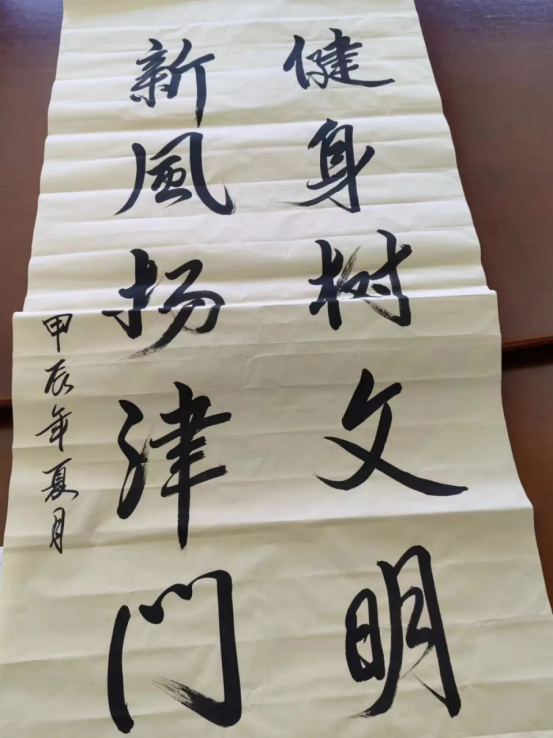 健身树文明
新風扬津门
甲辰年夏月